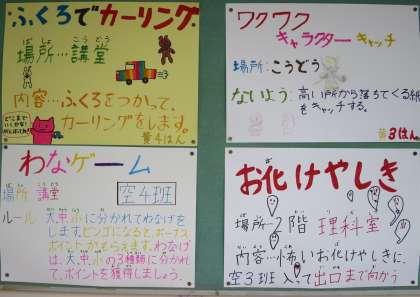 ふくろでカーリング
ばしょ こうどう
場所…講堂
ないよう
内容…ふくろをつかって、
カーリングをします。
黄4はん
ワクワク
キャラクターキャッチ
場所:こうどう
ないよう:高い所から落ちてくる紙
をキャッチする。
黄3はん
わなゲーム
ばしょ こうどう
場所 講堂
空4班
ルール 大中小に分かれてわなげを
します。ビンゴになると、ボーナス
ポイントがもらえます。わなげ
は、大、中、小の3種類に分かれ
て、ポイントを獲得しましょう。
お化けやしき
場所…2階 理科室
内容…怖いお化けやしきに、
空3班 入って出口まで向かう